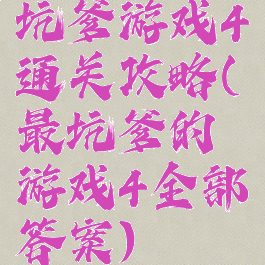 坑爹游戏4
通关攻略(
最坑爹的
游戏4全部
答案)